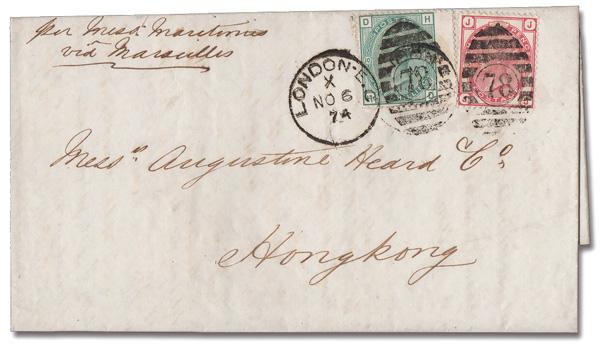 per Mess. Maritimes
viâ Marseilles
LONDON-E
X
NO 6
74
D H
78
J J
78
Mess.rs Augustine Heard & Co.
Hongkong